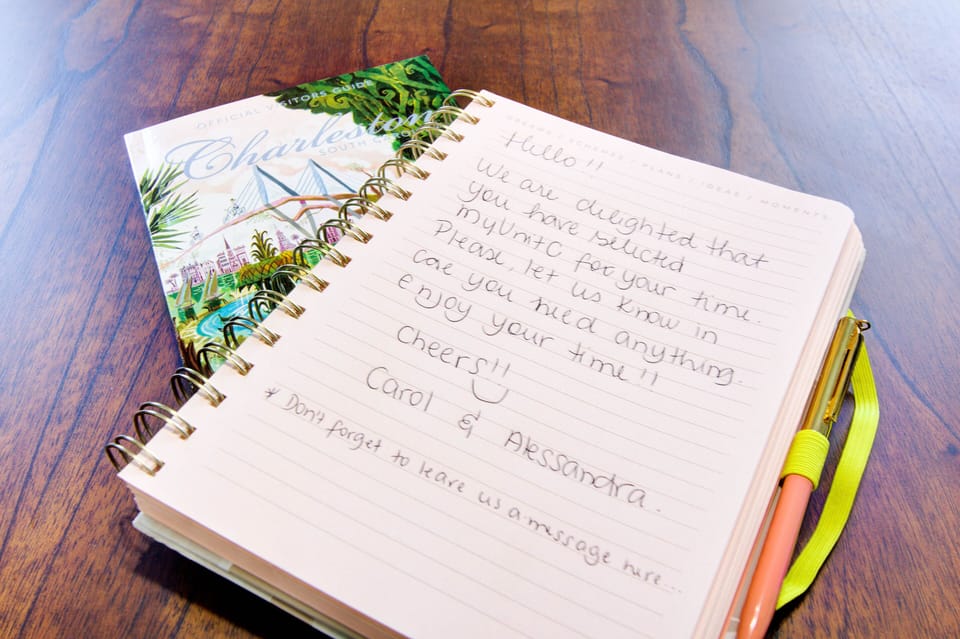 OFFICIAL VISITORS GUIDE
Charleston
SOUTH CA
DREAMS / SCHEMES / PLANS / IDEAS / MOMENTS
Hello!!
We are delighted that
you have selected
MyUnitC for your time.
Please, let us know in
case you need anything.
Enjoy your time!!
Cheers!!
Carol & Alessandra.
* Don't forget to leave us a message here...